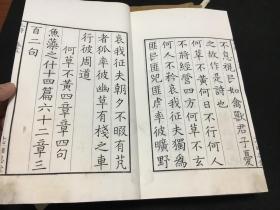 不息視民如禽獸君子憂
之故作是詩也
何草不黃何日不行何人
不將經營四方何草不玄
何人不矜哀我征夫獨爲
匪民匪兕匪虎率彼曠野
哀我征夫朝夕不暇有芃
者狐率彼幽草有棧之車
行彼周道
何草不黃四章章四句
魚藻之什十四篇六十二章三
百二句